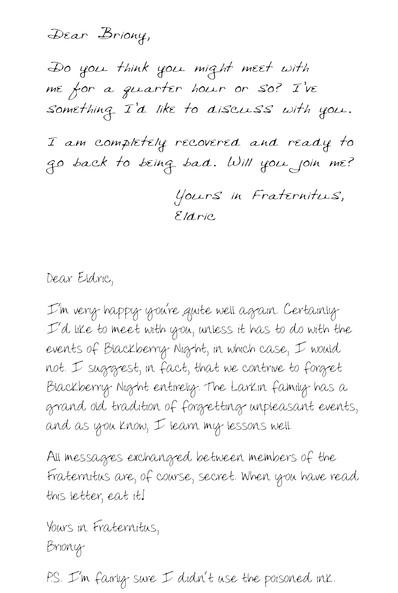 Dear Briony,
Do you think you might meet with
me for a quarter hour or so? I've
something I'd like to discuss with you.
I am completely recovered and ready to
go back to being bad. Will you join me?
Yours in Fraternitus,
Eldric
Dear Eldric,
I'm very happy you're quite well again. Certainly
I'd like to meet with you, unless it has to do with the
events of Blackberry Night, in which case, I would
not. I suggest, in fact, that we contrive to forget
Blackberry Night entirely. The Larkin family has a
grand old tradition of forgetting unpleasant events,
and as you know, I learn my lessons well.
All messages exchanged between members of the
Fraternitus are, of course, secret. When you have read
this letter, eat it!
Yours in Fraternitus,
Briony
P.S. I'm fairly sure I didn't use the poisoned ink.